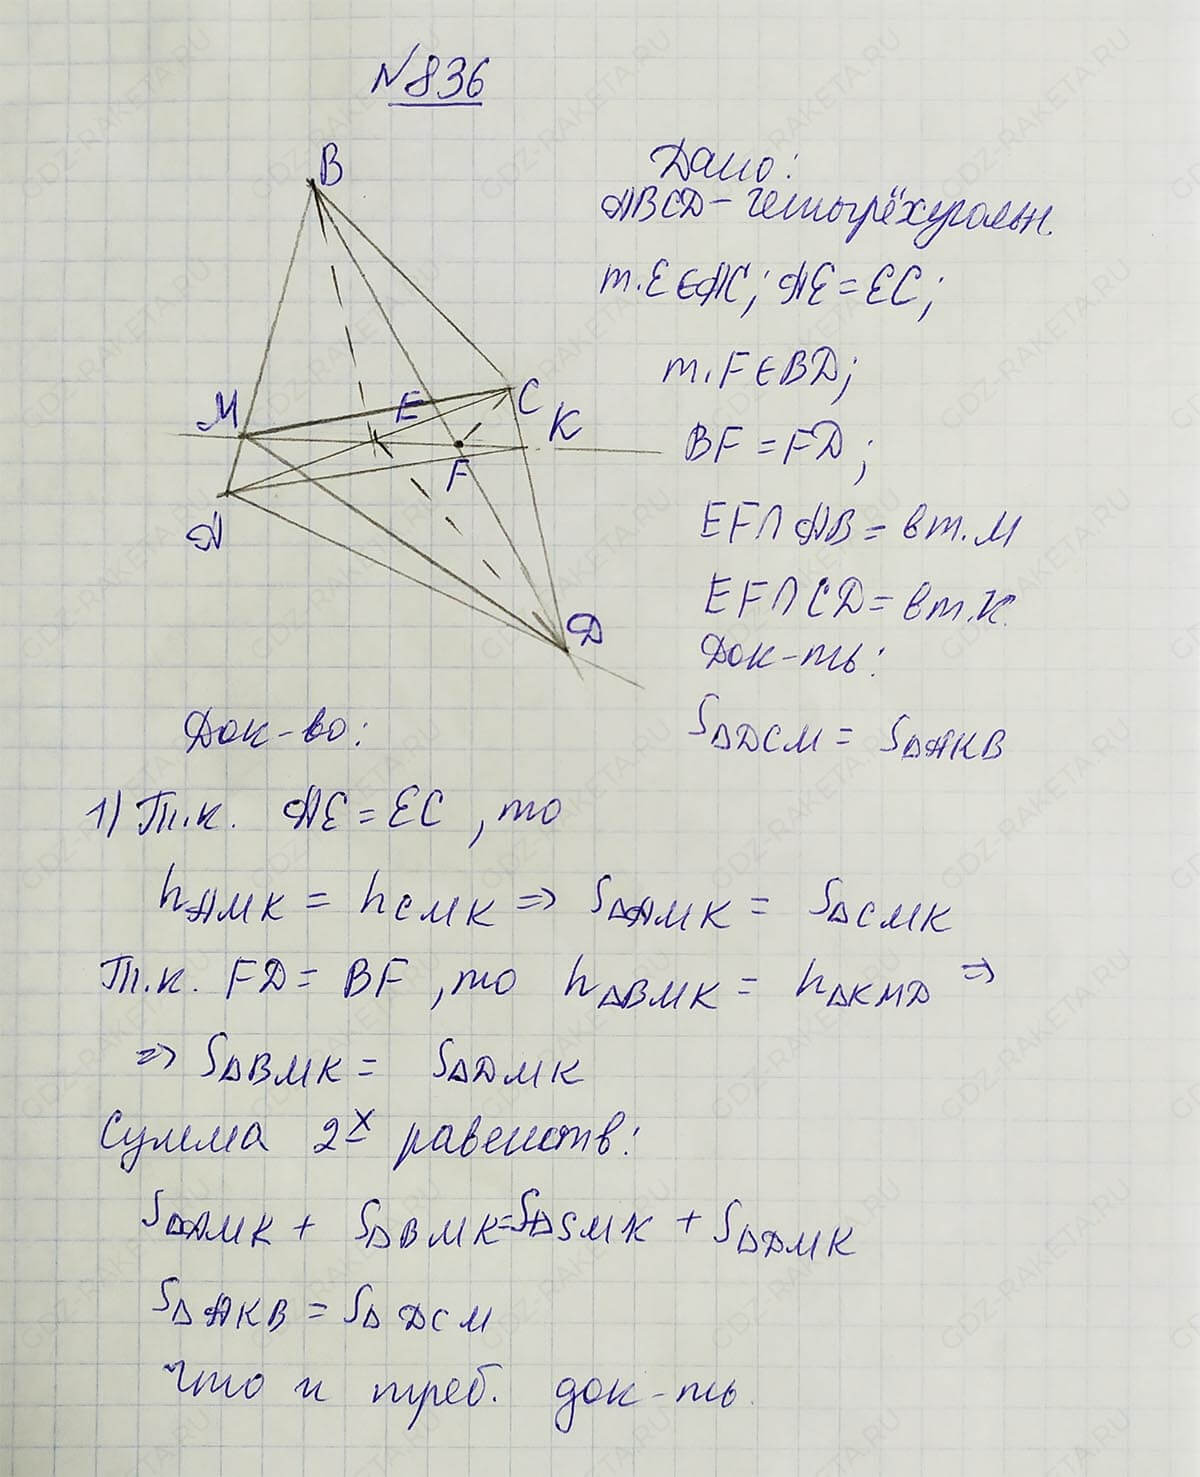 №836
B
M
E
C
K
F
A
D
Дано:
ABCD - четырёхугольн.
т. E ∈ AC; AE = EC;
т. F ∈ BD;
BF = FD;
EF ∩ AB = в т. M
EF ∩ CD = в т. K
Док-ть:
S∆DCM = S∆AKB
Док-во:
1) Т.к. AE = EC, то
hAMK = hCMK => S∆AMK = S∆CMK
Т.к. FD = BF, то h∆BMK = h∆KMD =>
=> S∆BMK = S∆DMK
Сумма 2х равенств:
S∆AMK + S∆BMK = S∆SMK + S∆DMK
S∆AKB = S∆DCM
Что и треб. док-ть.
GDZ-RAKETA.RU